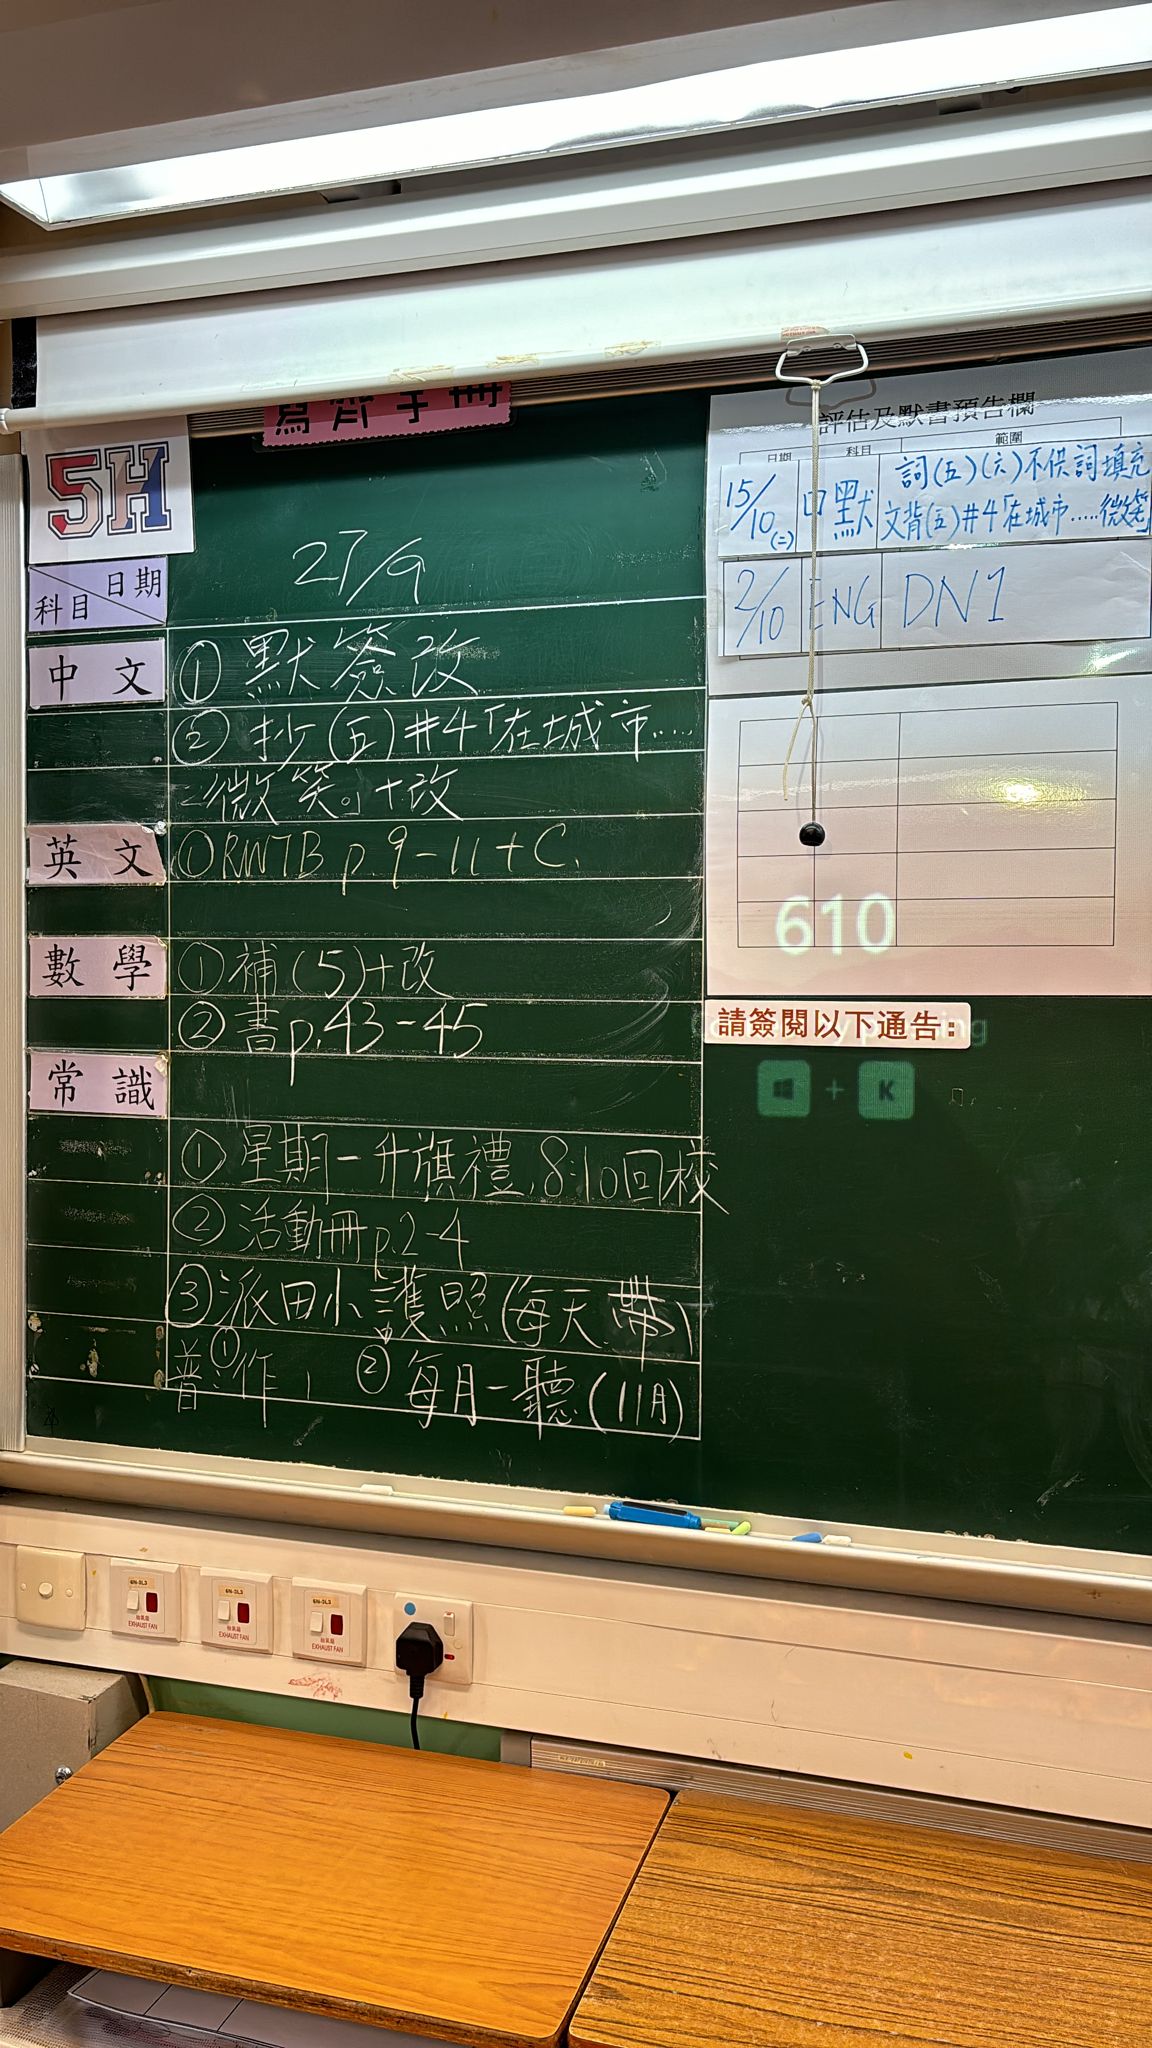 寫齊手冊
5H
日期
科目
27/9
中文
① 默簽改
② 抄(五)#4「在城市……
微笑。」+改
英文
① RWTB p.9-11+C.
數學
① 補(5)+改
② 書p.43-45
常識
① 星期一升旗禮,8:10回校
② 活動冊p.2-4
③ 派田小護照(每天帶)
普:①作, ②每月一聽(11月)
評估及默書預告欄
日期 科目 範圍
15/10(二) 默 詞(五)(六)不供詞填充
文背(五)#4「在城市……微笑」
2/10 ENG DN1
610
請簽閱以下通告:
+ K
6N-3L3
抽氣扇
EXHAUST FAN
6N-3L3
抽氣扇
EXHAUST FAN
6N-3L3
抽氣扇
EXHAUST FAN